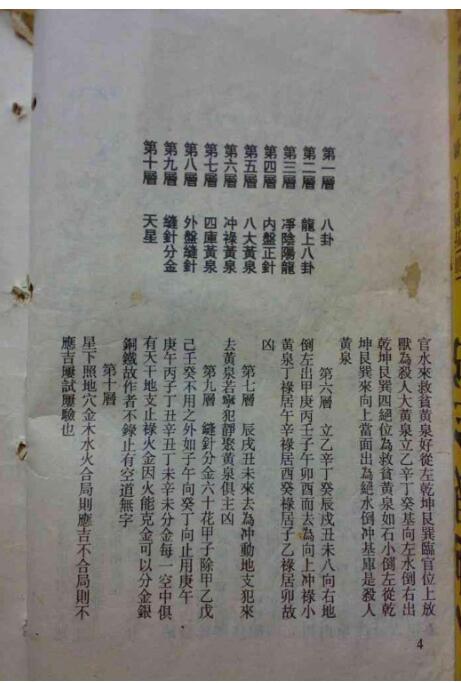 第一層　八卦
第二層　龍上八卦
第三層　淨陰陽龍
第四層　內盤正針
第五層　八大黃泉
第六層　冲祿黃泉
第七層　四庫黃泉
第八層　外盤縫針
第九層　縫針分金
第十層　天星
官水來救貧黃泉好從左乾坤艮巽臨官位上放
獸為殺人大黃泉立乙辛丁癸基向左水倒右出
乾坤艮巽四絕位為救貧黃泉如石小倒左從乾
坤艮巽來向上當面出為絕水倒冲基庫是殺人
黃泉
第六層　立乙辛丁癸辰戌丑未八向右地
倒左出甲庚丙壬子午卯酉而去為向上冲祿小
黃泉丁祿居午辛祿居酉癸祿居子乙祿居卯故
凶
第七層　辰戌丑未來去為冲動地支犯來
去黃泉若寧犯靜聚黃泉俱主凶
第九層　縫針分金六十花甲子除甲乙戊
己壬癸不用之外如子午向癸丁向止用庚午
庚午丙子丁丑辛丑丁未辛未分金每一空中俱
有天干地支止祿火金因火能克金可以分金銀
銅鐵故作者不錄止有空道無字
第十層
星下照地穴金木水火合局則應吉不合局則不
應吉屢試屢驗也
4